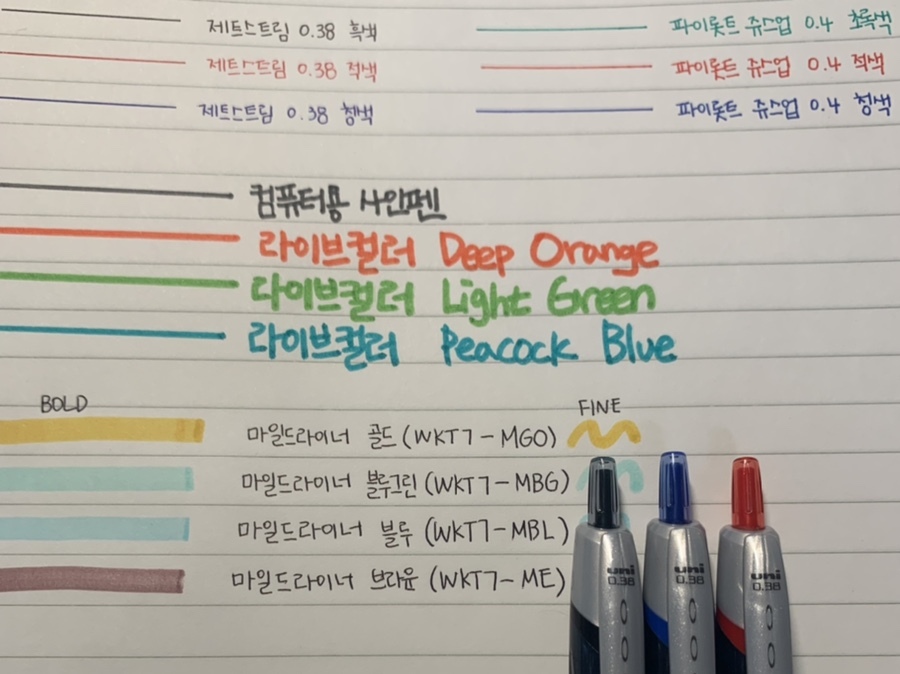 제트스트림 0.38 흑색
파이롯트 쥬스업 0.4 초록색
제트스트림 0.38 적색
파이롯트 쥬스업 0.4 적색
제트스트림 0.38 청색
파이롯트 쥬스업 0.4 청색
컴퓨터용 사인펜
라이브컬러 Deep Orange
라이브컬러 Light Green
라이브컬러 Peacock Blue
BOLD
FINE
마일드라이너 골드 (WKT7-MGO)
마일드라이너 블루그린 (WKT7-MBG)
마일드라이너 블루 (WKT7-MBL)
마일드라이너 브라운 (WKT7-ME)
uni 0.38
uni 0.38
uni 0.38